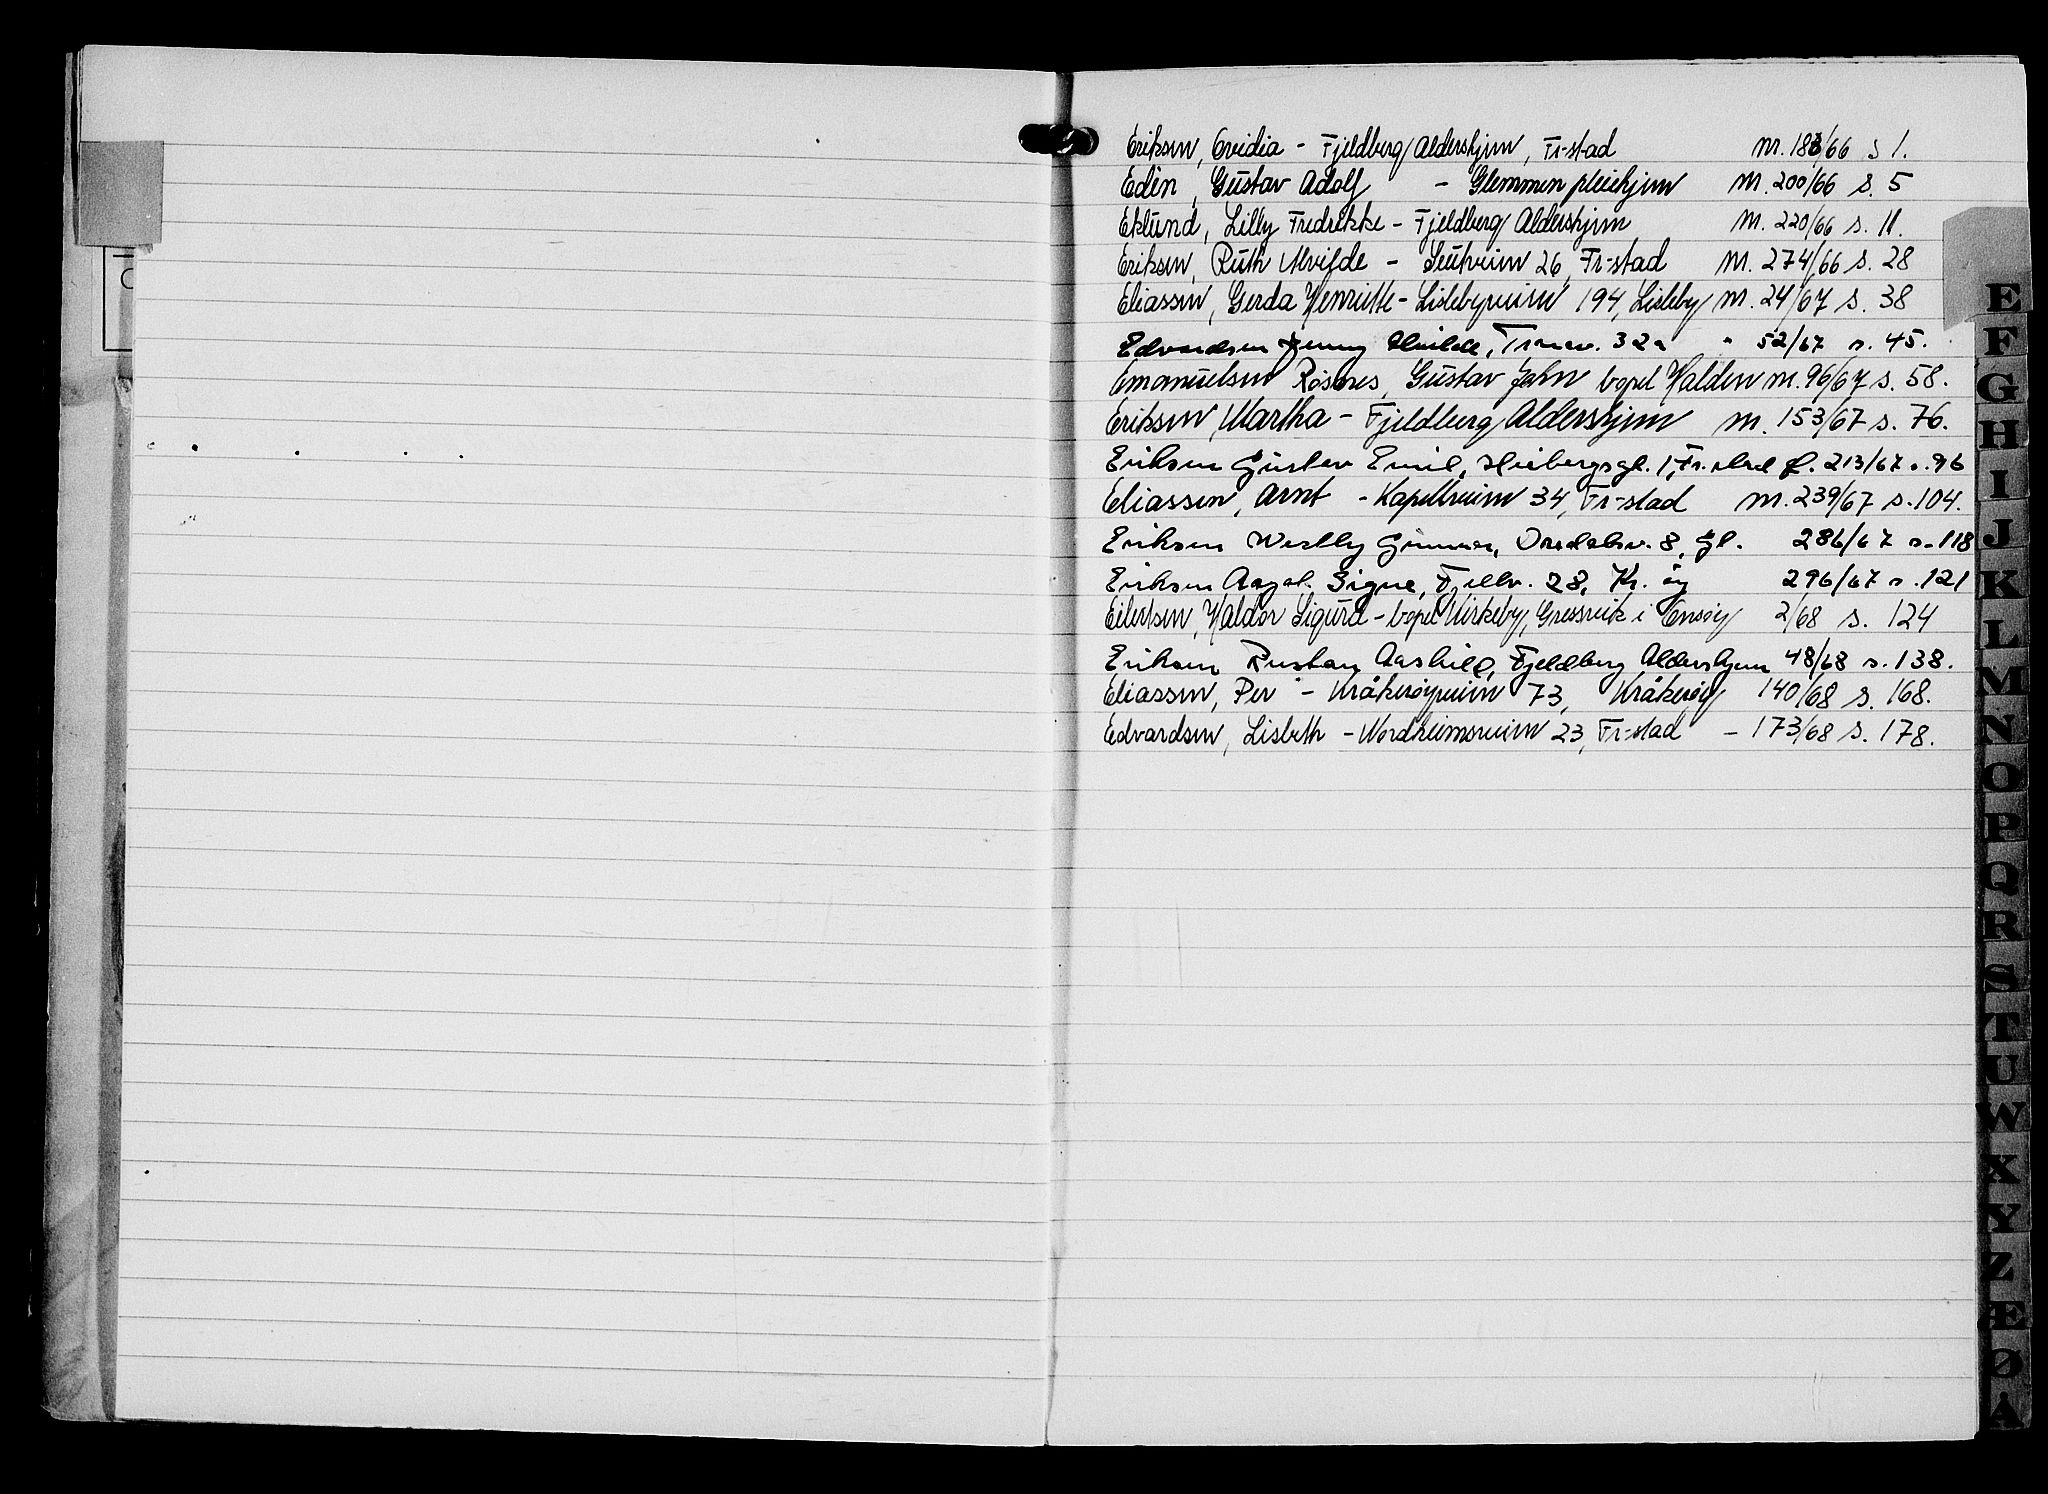 Eriksen, Ovidia - Fjeldberg Aldershjem, Fr-stad nr. 183/66 s 1.
Edèn, Gustav Adolf - Glemmen pleiehjem nr. 200/66 s. 5
Eklund, Lilly Fredrikke - Fjeldberg Aldershjem nr. 220/66 s. 11.
Eriksen, Ruth Alvilde - 26, Fr-stad nr. 274/66 s. 28
Eliassen, Gerda Henriette - Lislebyveien 194, Lisleby nr. 24/67 s. 38
Edvardsen Jenny 32a " 52/67 s. 45.
Emanuelsen Røsnes, Gustav John bopel Halden nr. 96/67 s. 58.
Eriksen, Martha - Fjeldberg Aldershjem nr. 153/67 s. 76.
Eriksen Gustav Emil, 1, Fr.stad f. 213/67 s. 96
Eliassen, Arnt - Kapellveien 34, Fr-stad nr. 239/67 s. 104.
Eriksen Westly Gunnar, 8, Gl. 286/67 s. 118
Eriksen Aagot Signe, Fjellv. 28, Kr. øy 296/67 s. 121
Eilertsen, Haldor Sigurd - bopel Kirkeby, Gressvik i Onsøy 2/68 s. 124
Eriksen Rustan Aashild, Fjeldberg Aldershjem 48/68 s. 138.
Eliassen, Per - Kråkerøyveien 73, Kråkerøy 140/68 s. 168.
Edvardsen, Lisbeth - Nordheimsveien 23, Fr-stad - 173/68 s. 178.
E
F
G
H
I
J
K
L
M
N
O
P
Q
R
S
T
U
W
X
Y
Z
Æ
Ø
Å